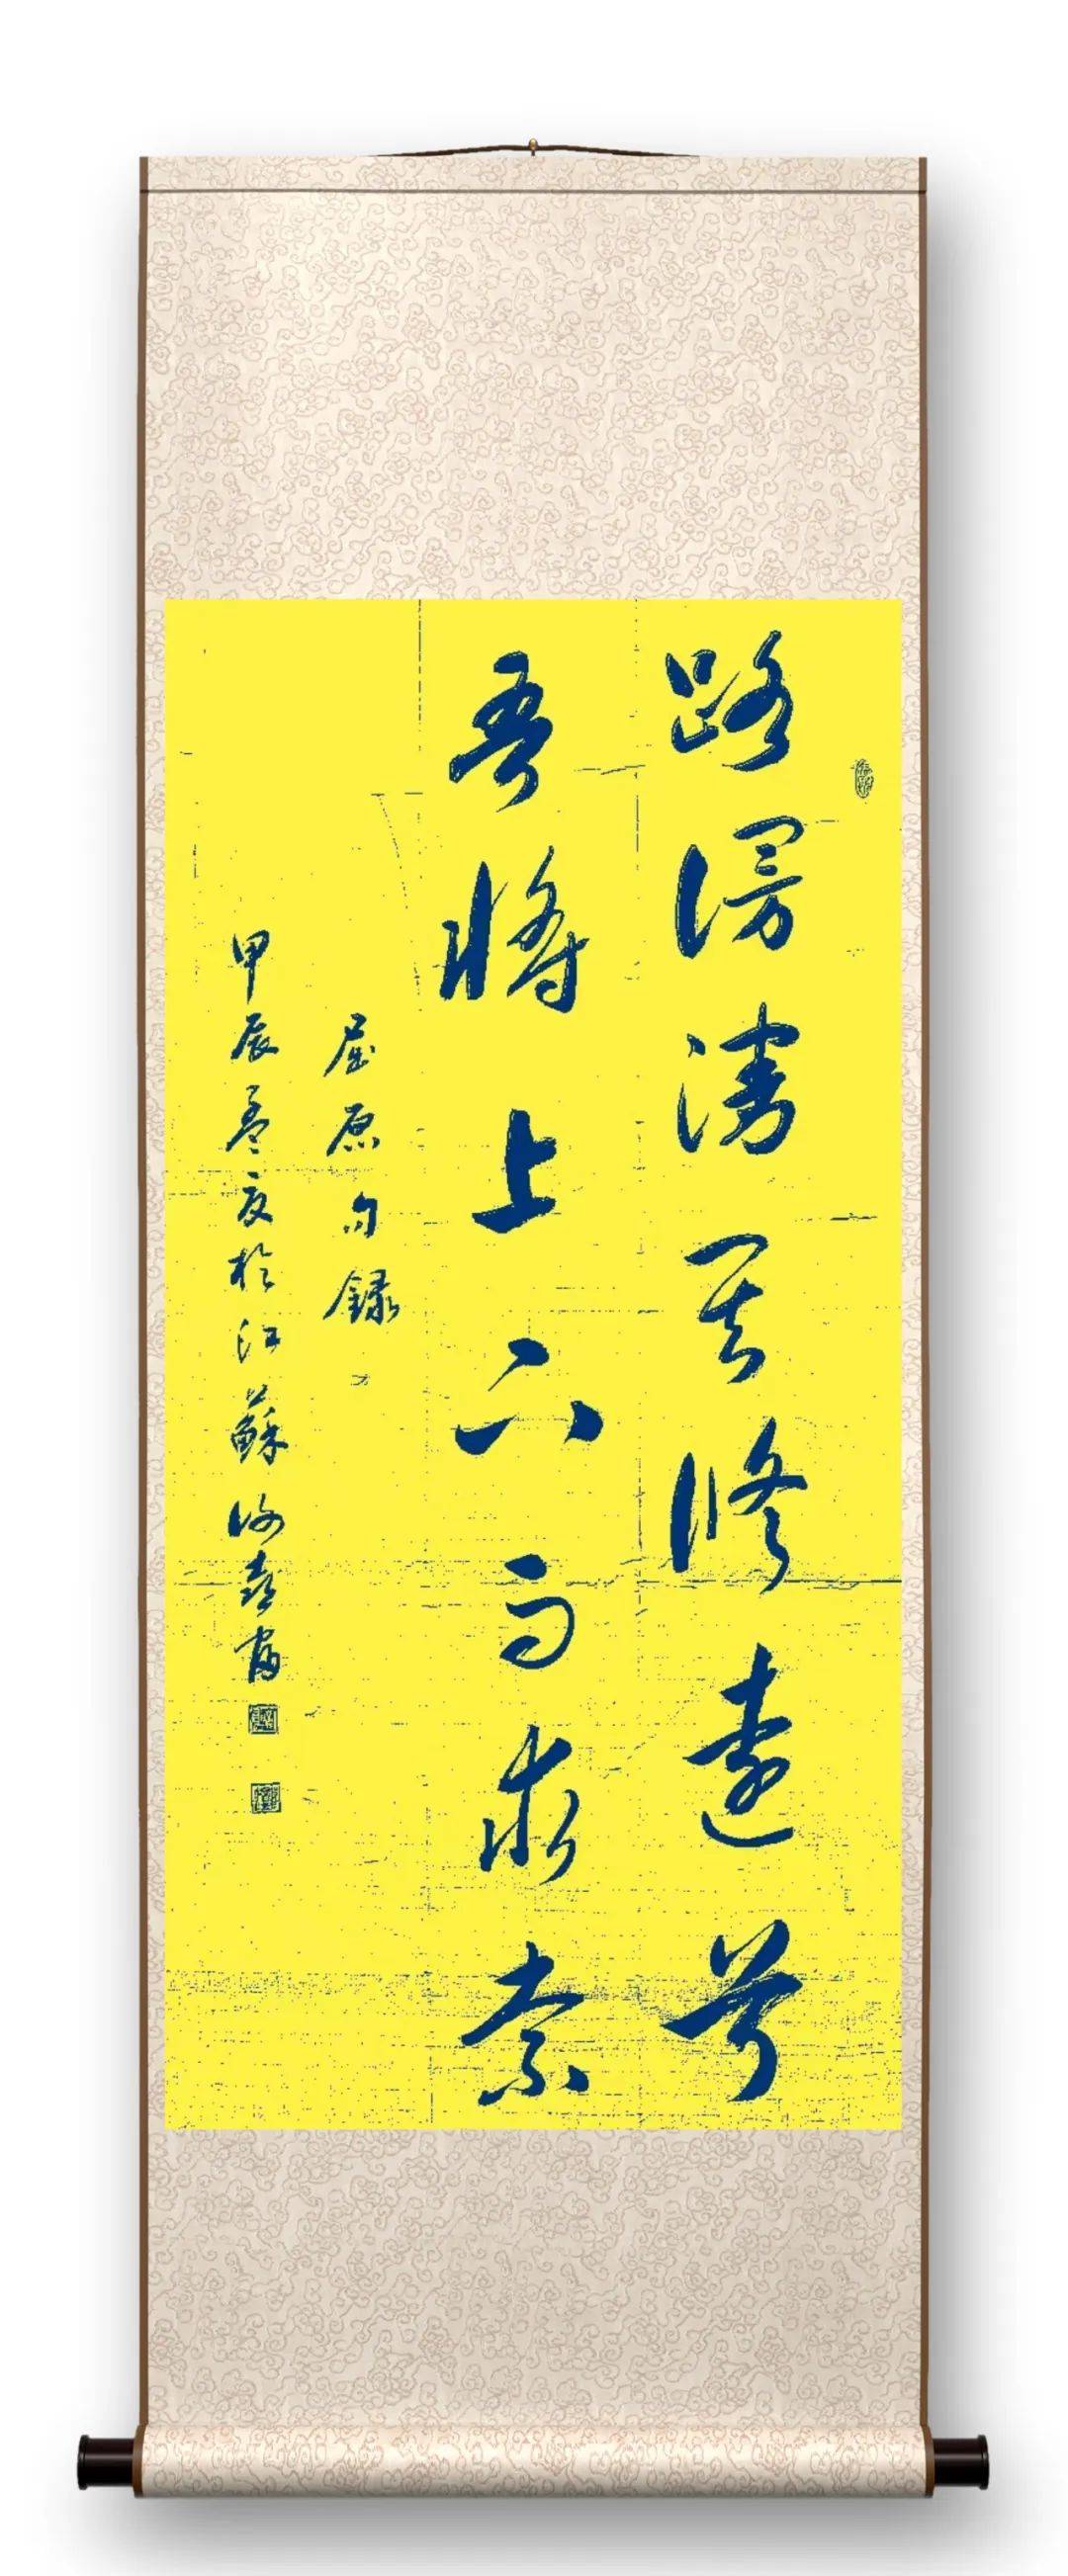 路漫漫其修遠兮
吾將上下而求索
屈原句錄
甲辰孟夏於江蘇